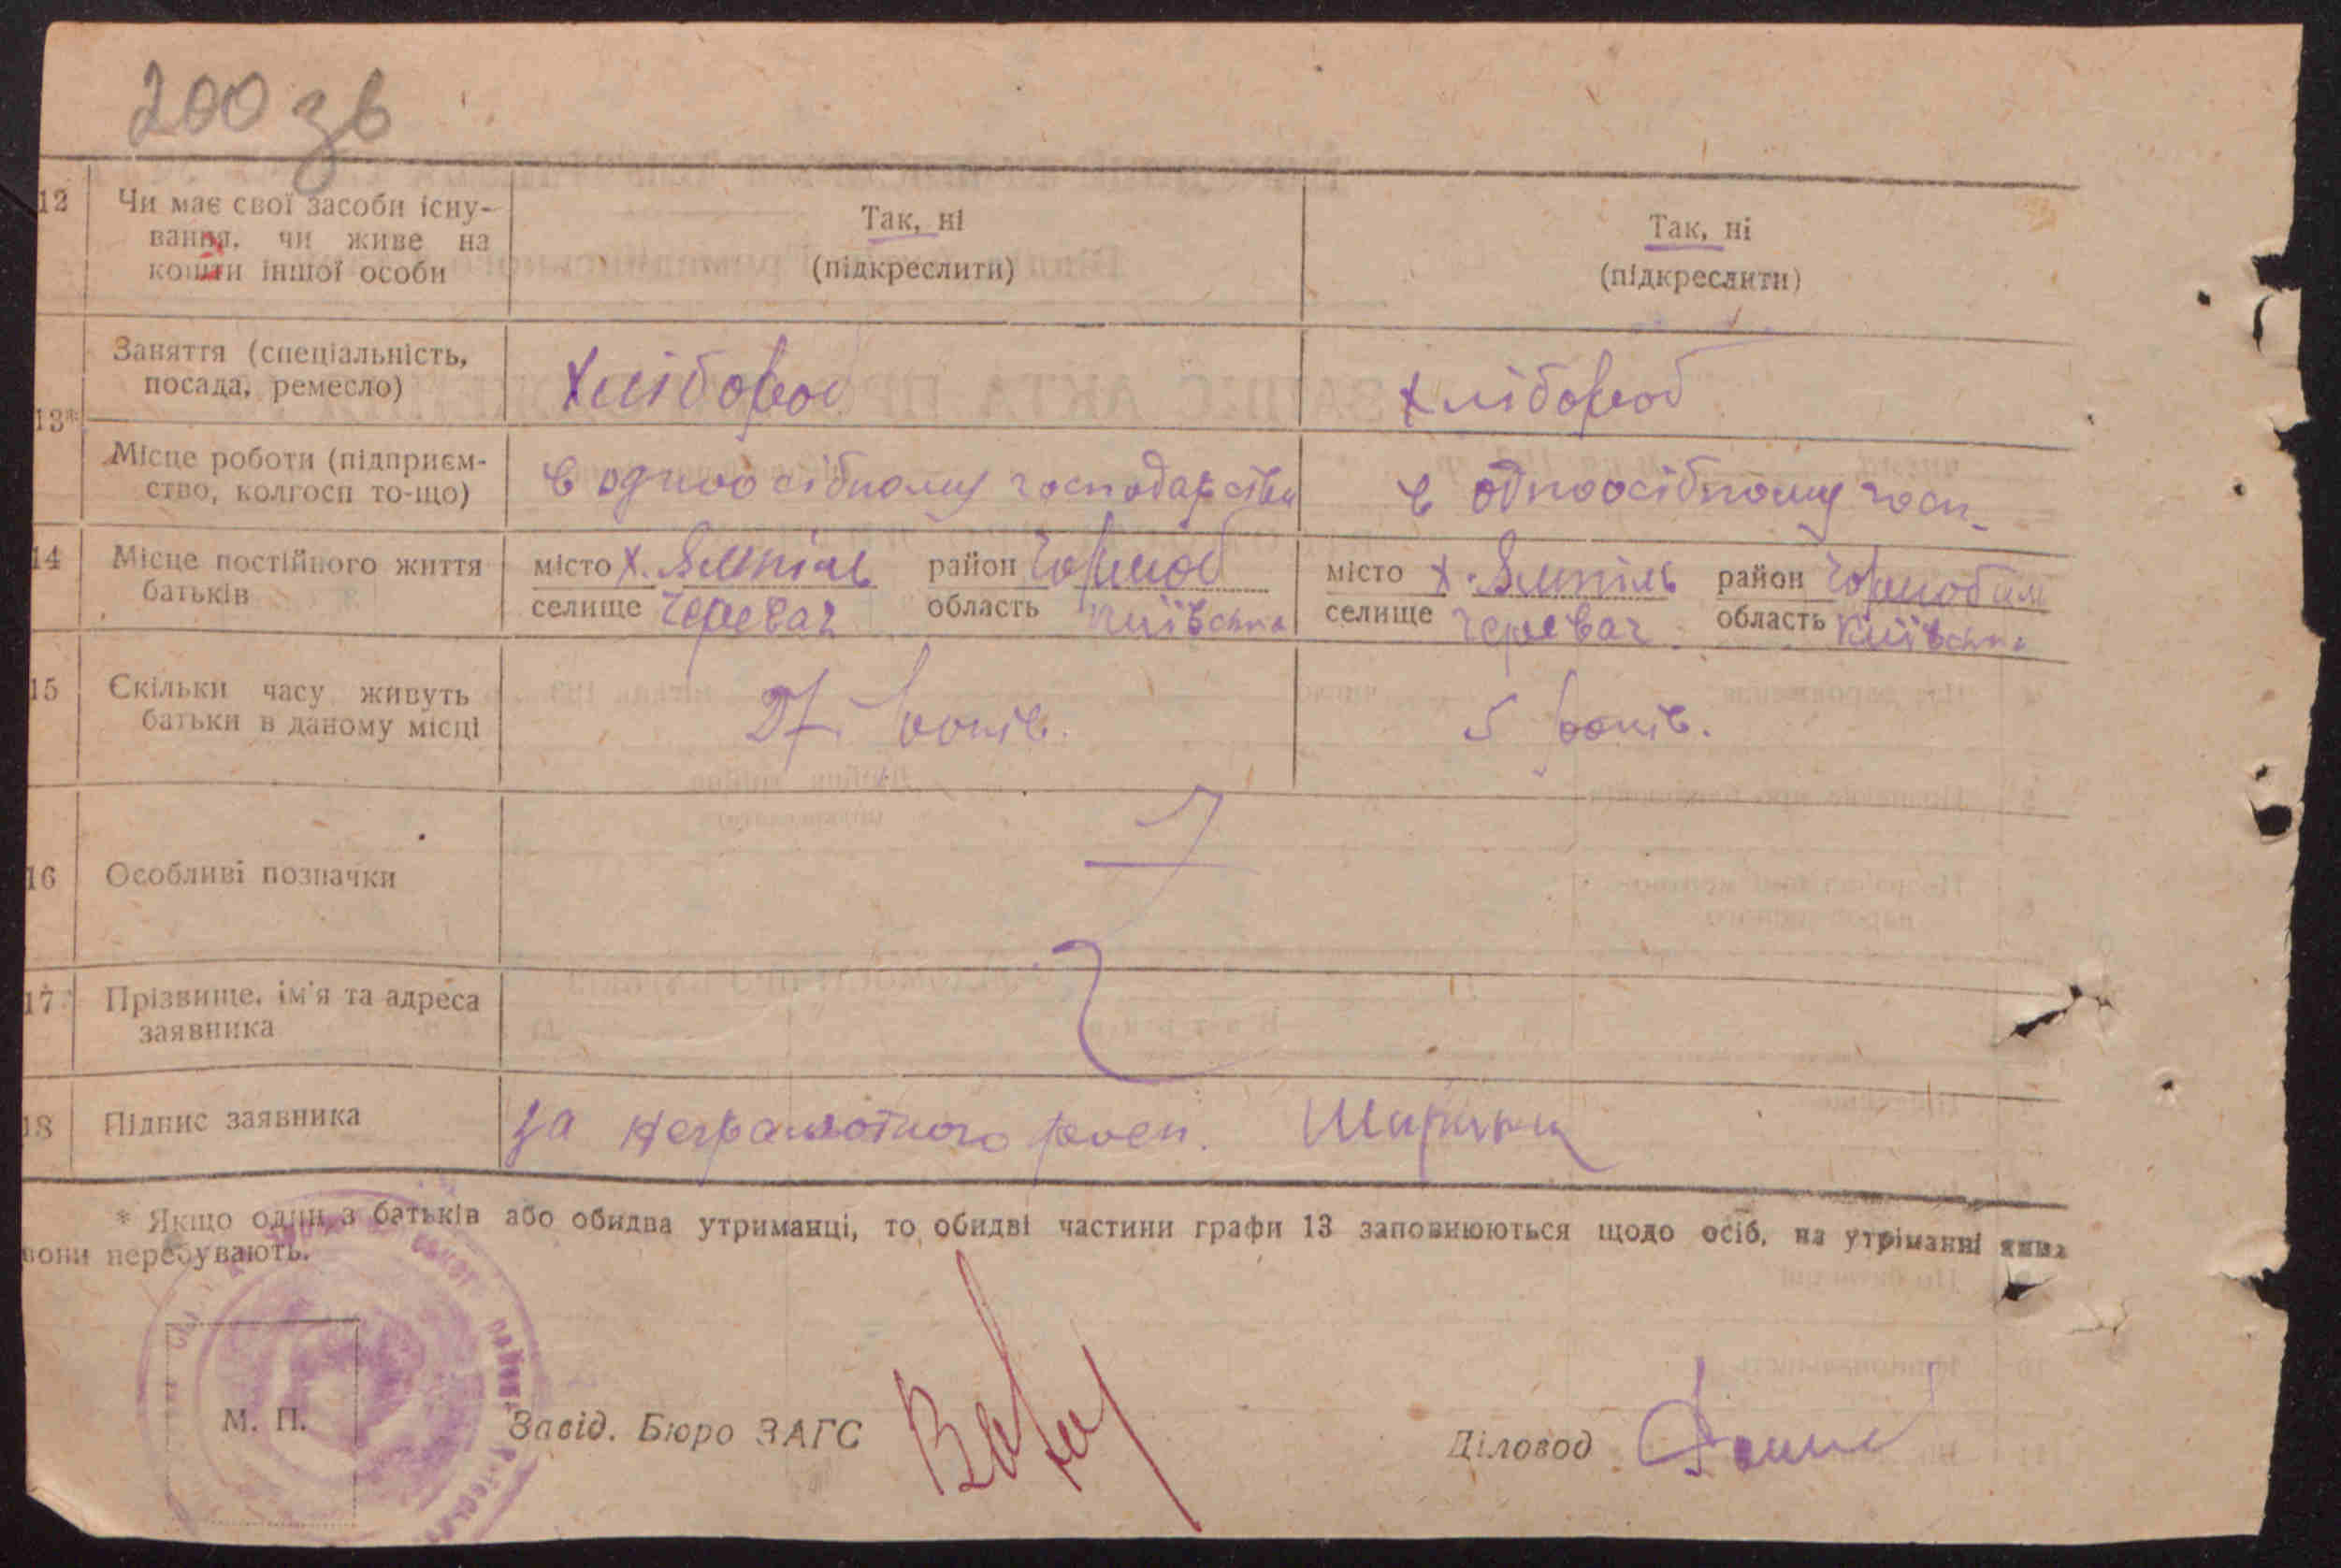 200 зв
12 Чи має свої засоби існу- Так, ні Так, ні
вання, чи живе на (підкреслити) (підкреслити)
кошти іншої особи
13* Заняття (спеціальність, Хлібороб Хлібороб
посада, ремесло)
Місце роботи (підприєм- в одноосібному господарстві в одноосібному госп.
ство, колгосп то-що)
14 Місце постійного життя місто х. Ямпіль район Чорноб місто х. Ямпіль район Чорнобил
батьків селище Черевач область Київська селище Черевач область Київська
15 Скільки часу живуть 27 років. 5 років.
батьки в даному місці
16 Особливі позначки
17 Прізвище, ім'я та адреса
заявника
18 Підпис заявника за неграмотного розп.
* Якщо один з батьків або обидва утриманці, то обидві частини графи 13 заповнюються щодо осіб, на утріманні яких
вони перебувають.
М. П. Завід. Бюро ЗАГС Діловод